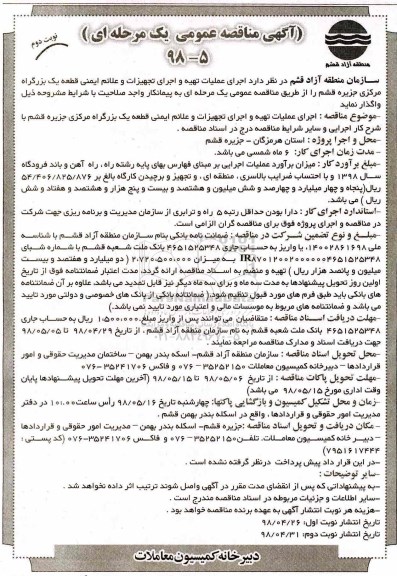 (آگهی مناقصه عمومی یک مرحله ای )
۵-۹۸
نوبت دوم
منطقه آزاد قشم
سازمان منطقه آزاد قشم در نظر دارد اجرای عملیات تهیه و اجرای تجهیزات و علائم ایمنی قطعه یک بزرگراه
مرکزی جزیره قشم را از طریق مناقصه عمومی یک مرحله ای به پیمانکار واجد صلاحیت با شرایط مشروحه ذیل
واگذار نماید
-موضوع مناقصه : اجرای عملیات تهیه و اجرای تجهیزات و علائم ایمنی قطعه یک بزرگراه مرکزی جزیره قشم با
شرح کار اجرایی و سایر شرایط مناقصه درج در اسناد مناقصه .
- محل و اجرا پروژه : استان هرمزگان - جزیره قشم
- مدت زمان اجرای کار: ۶ ماه شمسی می باشد.
-مبلغ برآورد کار : میزان برآورد عملیات اجرایی بر مبنای فهارس بهای پایه رشته راه ، راه آهن و باند فرودگاه
سال ۱۳۹۸ و با احتساب ضرایب بالاسری ، منطقه ای ، و تجهیز و برچیدن کارگاه بالغ بر ۵۴/۴۰۶/۸۲۵/۸۷۶
ریال(پنجاه و چهار میلیارد و چهارصد و شش میلیون و هشتصد و بیست و پنج هزار و هشتصد و هفتاد و شش
ریال ) می باشد.
-استاندارد اجرای کار : دارا بودن حداقل رتبه ۵ راه و ترابری از سازمان مدیریت و برنامه ریزی جهت شرکت
در مناقصه و اجرای پروژه فوق برای مناقصه گران الزامی است.
-مبلغ و نوع تضمین شرکت در مناقصه : ضمانت نامه بانکی بنام سازمان منطقه آزاد قشم با شناسه
ملی ۱۴۰۰۲۸۶۱۶۹۸، یا واریز به حساب جاری ۴۶۵۱۵۲۵۳۴۸ بانک ملت شعبه قشم با شماره شبای
به میزان ۲.۷۲۰.۵۰۰.۰۰۰ ( دو میلیارد و هفتصد و بیست
میلیون و پانصد هزار ریال ) تهیه و منضم به اسناد مناقصه ارائه گردد. مدت اعتبار ضمانتنامه فوق از تاریخ
اولین روز تحویل پیشنهادها به مدت سه ماه و برای سه ماه دیگر نیز قابل تمدید می باشد. علاوه بر آن ضمانتنامه
های بانکی باید طبق فرم های مورد قبول تنظیم شود.( ضمانتنامه بانکی از بانک های خصوصی و دولتی مورد تایید
می باشد و ضمانتنامه های مربوط به موسسات مالی و اعتباری مورد تایید نمی باشد.)
-مهلت دریافت اسناد مناقصه : متقاضیان می توانند پس از واریز مبلغ ۱.۵۰۰.۰۰۰ ریال به حساب جاری
۴۶۵۱۵۲۵۳۴۸ بانک ملت شعبه قشم به نام سازمان منطقه آزاد قشم ، از تاریخ ۹۸/۰۴/۲۹ تا ۹۸/۰۵/۰۵
جهت دریافت اسناد و مدارک مناقصه مراجعه نمایند .
-محل تحویل اسناد مناقصه : سازمان منطقه آزاد قشم- اسکله بندر بهمن – ساختمان مدیریت حقوقی و امور
قراردادها – دبیرخانه کمیسیون معاملات ۳۵۲۵۲۱۵۰ -۰۷۶ و فاکس ۳۵۲۴۱۷۰۶-۰۷۶
-مهلت تحویل پاکات مناقصه : از تاریخ ۹۸/۰۵/۰۶ تا ۹۸/۰۵/۱۵ (آخرین مهلت تحویل پیشنهادها پایان
وقت اداری مورخ ۹۸/۰۵/۱۵ می باشد)
-زمان و محل تشکیل کمیسیون و بازگشایی پاکتها: چهارشنبه تاریخ ۹۸/۰۵/۱۶ رأس ساعت۱۰:۰۰ در دفتر
مدیریت امور حقوقی و قراردادها ، واقع در اسکله بندر بهمن قشم .
- مکان دریافت و تحویل اسناد مناقصه :جزیره قشم- اسکله بندر بهمن – مدیریت امور حقوقی و قراردادها
- دبیر خانه کمیسیون معاملات. تلفن۳۵۲۵۲۱۵۰-۰۷۶ و فاکس ۳۵۲۴۱۷۰۶-۰۷۶ (کد پستی :
۷۹۵۱۶۱۷۴۴۴)
-در این قرار داد پیش پرداخت درنظر گرفته نشده است .
-سایر توضیحات :
-به پیشنهاداتی که پس از انقضای مدت مقرر در آگهی واصل شوند ترتیب اثر داده نخواهد شد .
-سایر اطلاعات و جزئیات مربوطه در اسناد مناقصه مندرج است .
-هزینه هر نوبت انتشار آگهی به عهده برنده مناقصه خواهد بود .
تاریخ انتشار نوبت اول: ۹۸/۰۴/۲۶
تاریخ انتشار نوبت دوم: ۹۸/۰۴/۳۱
دبیرخانه کمیسیون معاملات